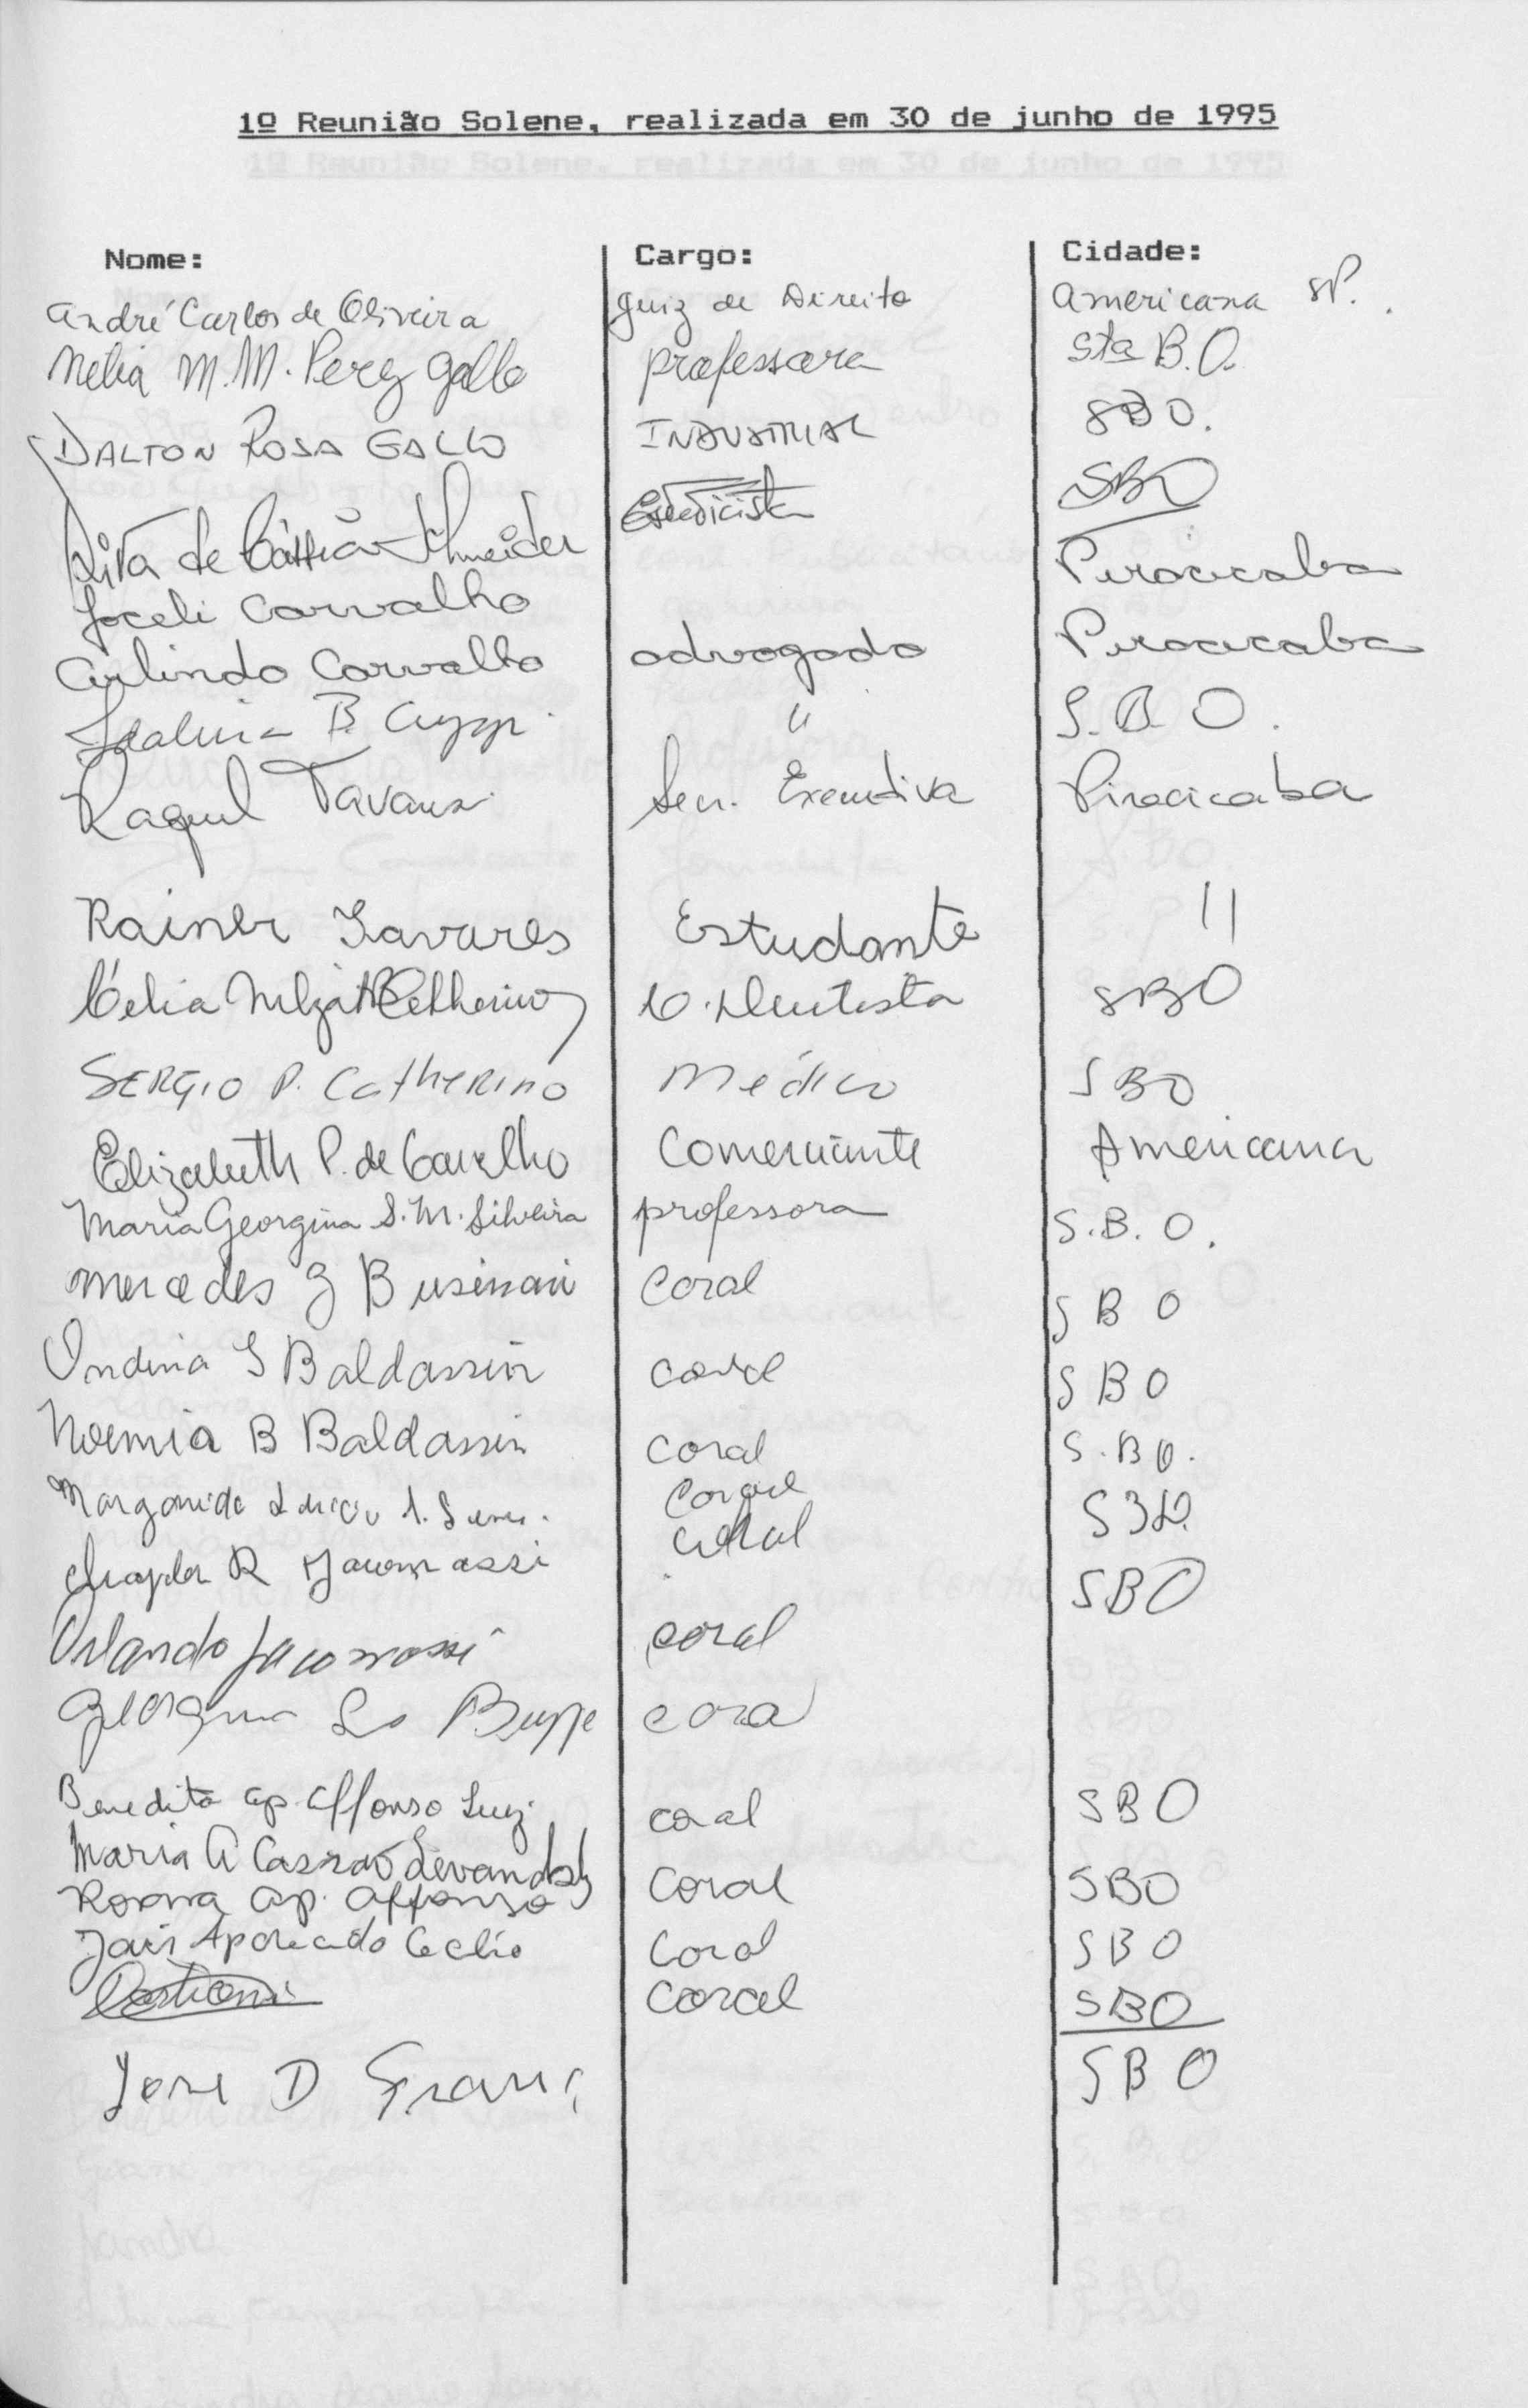 1º Reunião Solene, realizada em 30 de junho de 1995
Nome: Cargo: Cidade:
André Carlos de Oliveira Juiz de Direito Americana SP.
Nelia M. M. Perez Gallo professora Sta B.O.
DALTON ROSA GALLO INDUSTRIAL SBO.
Rita de Cássia Schneider Esteticista SBO
Joceli Carvalho Piracicaba
Arlindo Carvalho advogado Piracicaba
Idalina B. " S.B.O.
Raquel Tavares Secr. Executiva Piracicaba
Rainer Tavares Estudante "
Célia C. Dentista SBO
SERGIO P. CatHERINO Médico SBO
Elizabeth P. de Carvalho Comerciante Americana
Maria Georgina S. M. Silveira professora S.B.O.
Mercedes J Businari Coral SBO
Ondina S Baldassin coral SBO
Noemia B Baldassin coral S.BO.
Margarida coral SBO.
R Jacomassi coral SBO
Orlando Jacomassi coral
Georgina coral
Benedita ap. Affonso Luiz coral SBO
Maria A Casrão Coral SBO
Rosana ap. Affonso
Jair Aparecido Coral SBO
coral SBO
Jose D SBO